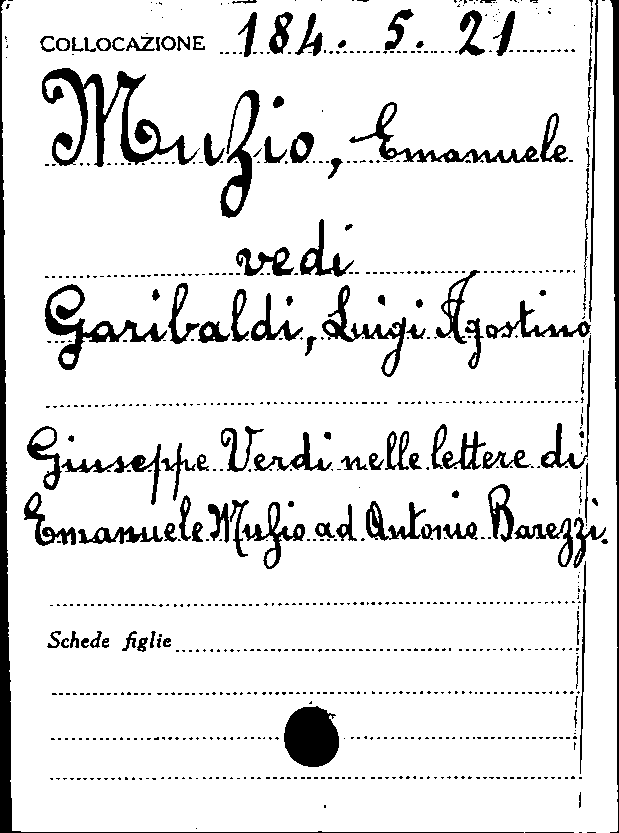 COLLOCAZIONE 184. 5. 21
Muzio, Emanuele
vedi
Garibaldi, Luigi Agostino
Giuseppe Verdi nelle lettere di
Emanuele Muzio ad Antonio Barezzi.
Schede figlie